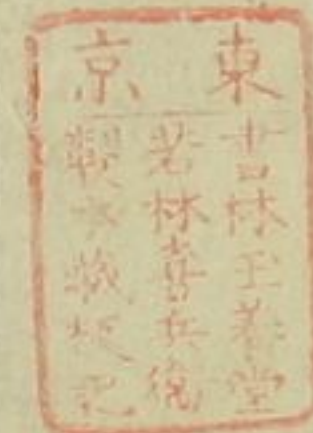 東京
書林玉養堂
若林喜兵衛
製本記